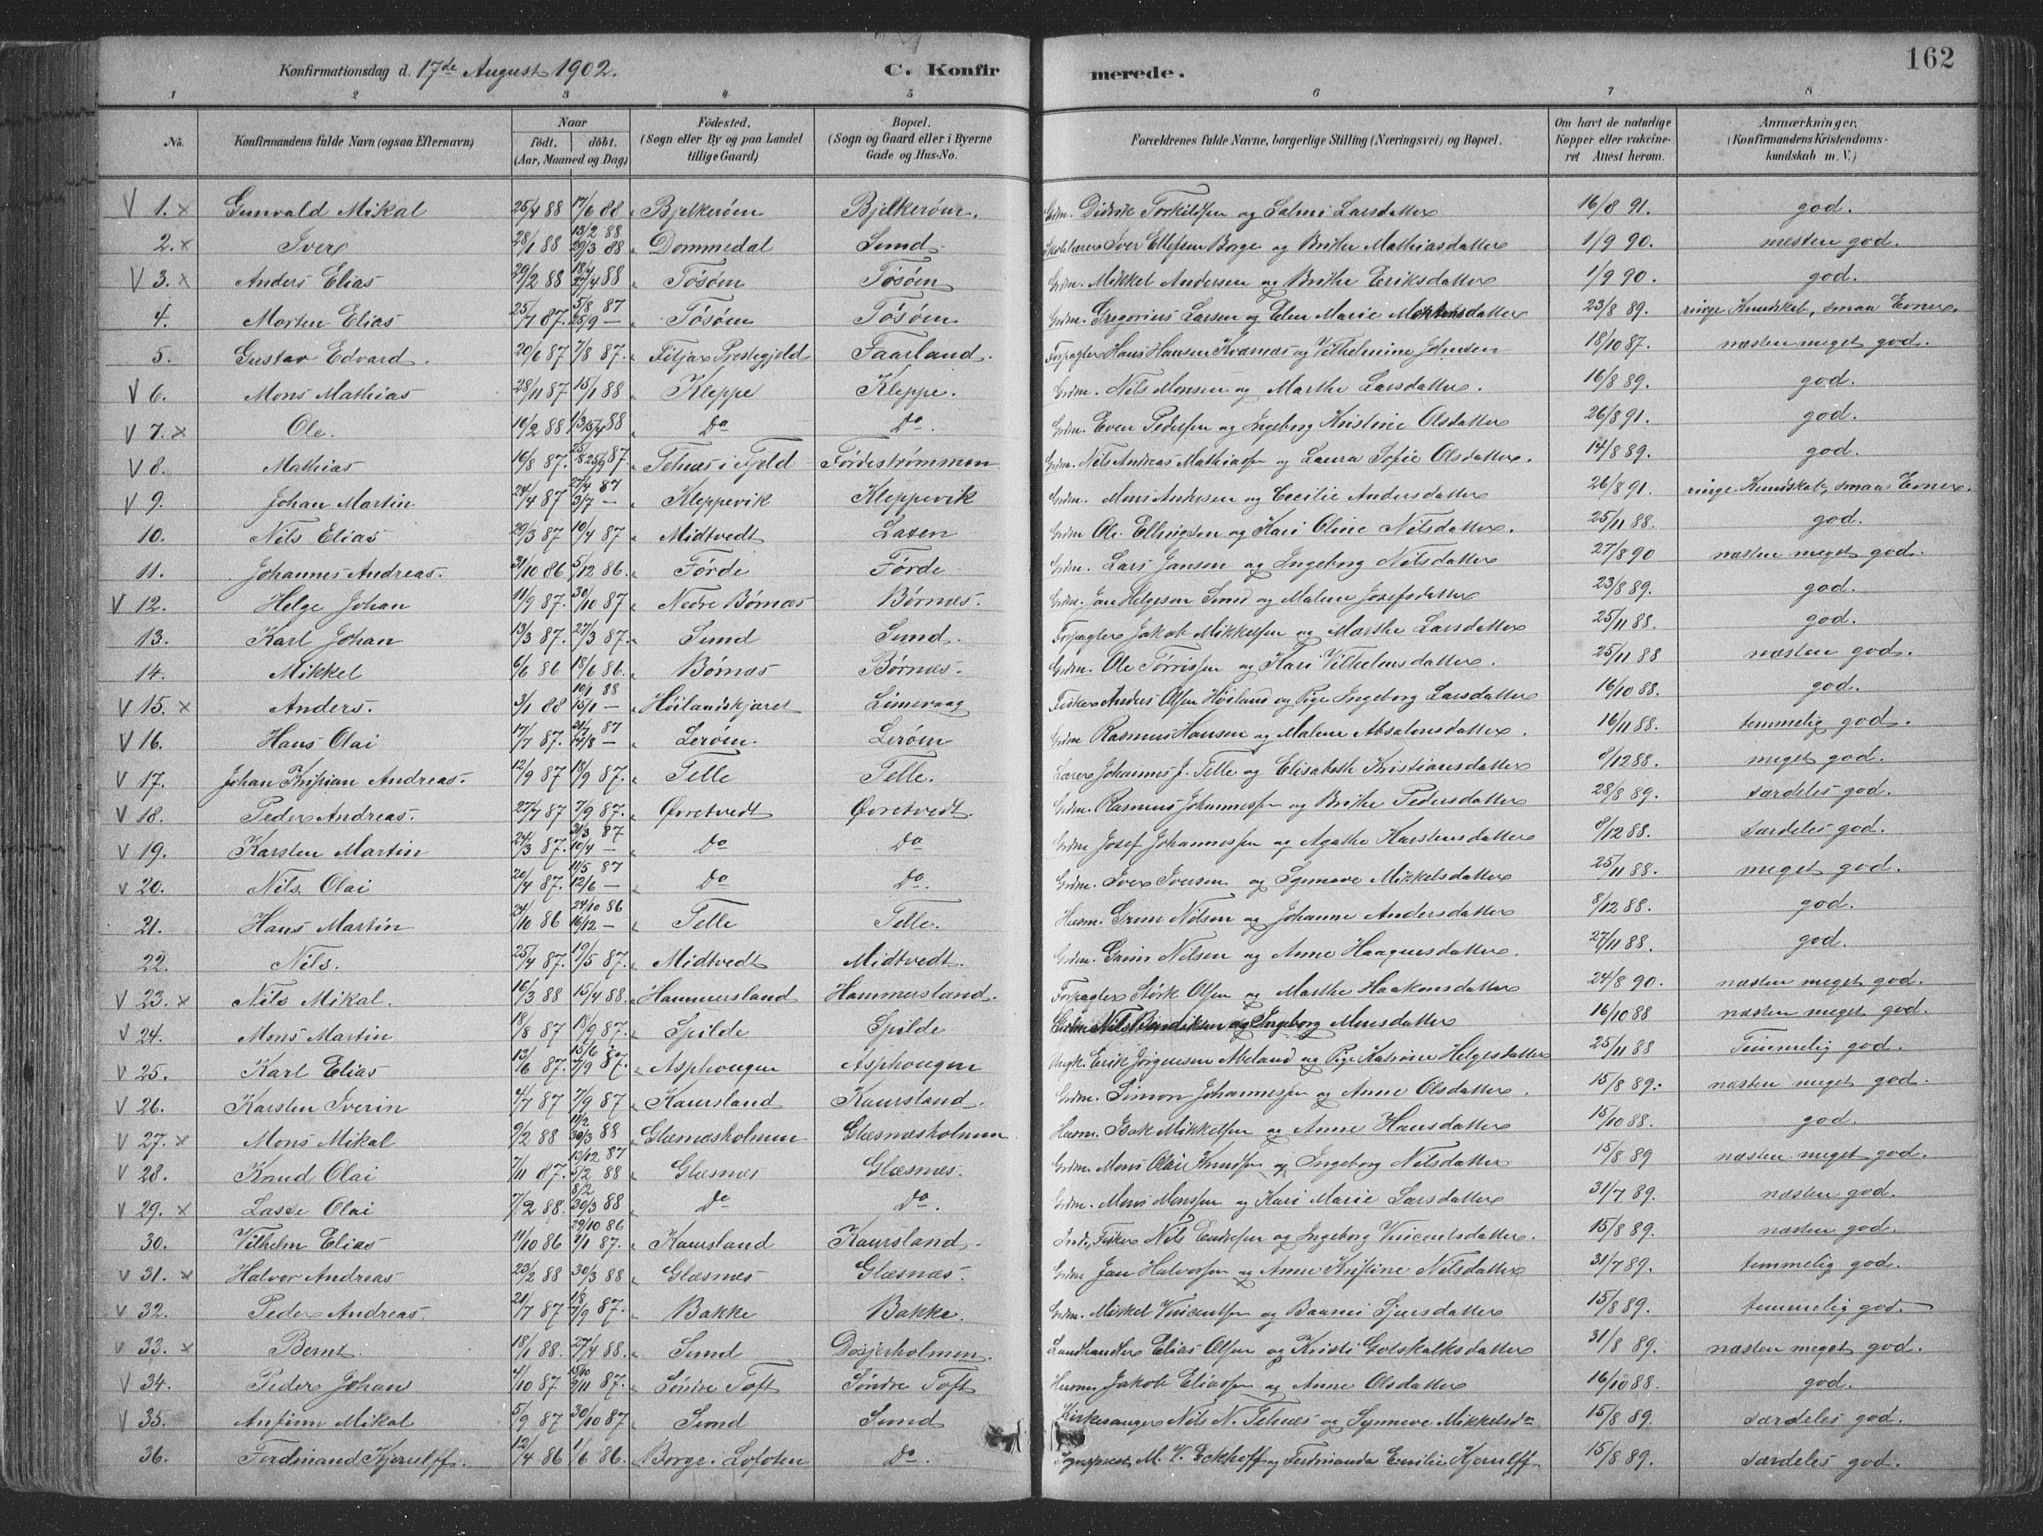 162
Konfirmationsdag d. 17de August 1902. C. Konfirmerede.
1 2 3 4 5 6 7 8
No. Konfirmandens fulde Navn (ogsaa Efternavn) Naar født. døbt. (Aar, Maaned og Dag) Fødested. (Sogn eller By og paa Landet tillige Gaard) Bopæl. (Sogn og Gaard eller i Byerne Gade og Hus-No. Forældrenes fulde Navne, borgerlige Stilling (Næringsvei) og Bopæl. Om havt de naturlige Kopper eller vakcineret Attest herom. Anmærkninger. (Konfirmandens Kristendomskundskab m. V.)
V 1. x Gunvald Mikal 25/4 88 17/6 88 Bjelkerøen Bjelkerøen. Grdm. Didrik Torkilsen og Salmi Larsdatter 16/8 91. god.
2. x Iver 28/1 88 13/2 88 29/3 88 Dommedal Sund Iver Ellefsen Borge og Brithe Mathiasdatter 1/9 90. næsten god.
V 3. x Anders Elias 29/2 88 27/4 88 Tøsøen Tøsøen Grdm. Mikkel Andersen og Brithe Eriksdatter 1/9 90. god.
4. Morten Elias 25/7 87. 5/8 87 25/9 — Tøsøen Tøsøen Grdm. Gregorius Larsen og Elen Marie Mortensdatter 23/8 89. ringe Kundskab, smaa Evner.
5. Gustav Edvard. 20/6 87 7/8 87. Fitjar Prestegjeld Faarland. Forpagter Hans Hansen Kvernæs og Vilhelmine Johnsen 18/10 87. næsten meget god.
V 6. Mons Mathias 28/11 87 15/1 88 Kleppe Kleppe. Grdm. Nils Monsen og Marthe Larsdatter. 16/8 89. god.
V 7. x Ole. 16/2 88 Do Do. Grdm. Even Pedersen og Ingeborg Kristine Olsdatter 26/8 91. god.
V 8. Mathias 16/8 87. 25/8 25/9 87 Telnæs i Fjeld Førdestrømmen Grdm. Nils Andreas Mathiassen og Laura Sofie Olsdatter. 14/8 89. god.
V 9. Johan Martin 24/4 87 27/4 87 3/7 — Kleppevik Kleppevik Grdm. Mons Andersen og Cecilie Andersdatter 26/8 91. ringe Kundskab, smaa Evner.
10. Nils Elias 29/3 87 10/4 87 Midtvedt Laxen Grdm Ole Ellingsen og Kari Oline Nilsdatter. 25/11 88. god.
11. Johannes Andreas. 31/10 86 5/12 86. Førde Førde Grdm. Lars Jansen og Ingeborg Nilsdatter 27/8 90 næsten meget god.
V 12. Helge Johan 11/9 87. 30/10 87 Nedre Børnæs Børnæs. Grdm. Jan Helgesen Sund og Malene Josefsdatter 23/8 89. god.
13. Karl Johan 13/3 87. 27/3 87. Sund Sund. Forpagter Jakob Mikkelsen og Marthe Larsdatter 25/11 88. god.
14. Mikkel 6/6 86 18/6 86. Børnæs Børnæs. Grdm. Ole Tørrissen og Kari Vilhelmsdatter. 25/11 88 næsten god.
V 15. x Anders. 3/1 88 10/1 88 15/1 — Høilandskjæret Limevaag Fisker Anders Olsen Høiland og Pige Ingeborg Larsdatter 16/10 88. god.
V 16. Hans Olai 17/7 87. 31/7 87 14/8 — Lerøen. Lerøen Grdm Rasmus Hansen og Malene Absalonsdatter. 16/11 88. temmelig god.
V 17. Johan Kristian Andreas. 12/9 87 18/9 87. Telle Telle. Lærer Johannes J. Telle og Elisabeth Kristiansdatter 8/12 88. meget god.
V 18. Peder Andreas. 27/7 87 7/9 87. Øvretvedt Øvretvedt Grdm. Rasmus Johannessen og Brithe Pedersdatter 28/8 89. særdeles god.
V 19. Karsten Martin 24/3 87. 31/3 87 10/4 — Do Do Grdm Josef Johannessen og Agathe Karstensdatter 8/12 88. særdeles god.
V 20. Nils Olai 20/4 87. 11/5 87 12/6 — Do Do. Grdm. Iver Iversen og Synneve Mikkelsdatter 25/11 88. meget god.
21. Hans Martin 24/10 86 24/10 86 16/12 — Telle Telle. Husm. Grim Nilsen og Johanne Andersdatter 8/12 88. god.
22. Nils. 25/4 87. 19/5 87. Midtvedt Midtvedt. Grdm. Grim Nilsen og Anne Haagensdatter. 27/11 88. god.
V 23. x Nils Mikal. 16/3 88 15/4 88 Hammersland Hammersland. Forpagter Størk Olsen og Marthe Haakonsdatter 24/8 90. næsten meget god.
V 24. Mons Martin 18/8 87 18/9 87. Spilde Spilde Grdm Nils Bendiksen og Ingeborg Monsdatter 16/10 88 næsten meget god.
V 25. Karl Elias 13/6 87. 15/6 7/9 87. Asphougen Asphougen Ungk. Erik Jørgensen Abeland og Pige Katrine Helgesdatter 25/11 88 Temmelig god.
V 26. Karsten Iverin 4/7 87 7/9 87 Kaursland Kaursland. Grdm. Simon Johannessen og Anne Olsdatter. 15/8 89. næsten meget god.
V 27. x Mons Mikal 9/2 88 11/2 30/3 88 Glæsnæsholmen Glæsnæsholmen Husm. Isak Mikkelsen og Anne Hansdatter 15/10 88. god.
V 28. Knud Olai 7/11 87. 13/12 87 5/2 88 Glæsnæs Glæsnæs. Grdm. Mons Olai Knudsen og Ingeborg Nilsdatter 15/8 89 næsten meget god.
V 29. x Lasse Olai 7/2 88. 8/2 30/3 88 Do Do. Grdm. Mons Monssen og Kari Marie Larsdatter 31/7 89. næsten god.
30. Vilhelm Elias 11/10 86 29/10 86 2/1 87. Kaursland Kaursland. Fisker Nils Endresen og Ingeborg Vincentsdatter. 15/8 89. næsten god.
V 31. x Halvor Andreas 23/2 88 30/3 88 Glæsnæs Glæsnæs. Grdm Jan Halvorsen og Anne Kristine Nilsdatter 31/7 89. temmelig god.
V 32. Peder Andreas. 21/7 87 1/8 7/9 87. Bakke Bakke. Grdm. Mikkel Vincentsen og Sjursdatter 15/8 89. temmelig god.
V 33. x Bernt. 18/1 88. 27/4 88. Sund Døsjerholmen. Landhandler Elias Olsen og Kristi Gotskalksdatter 31/8 89. næsten meget god.
V 34. Peder Johan 4/10 87 15/10 2/11 87. Søndre Toft Søndre Toft Husm Jakob Eliassen og Anne Olsdatter 16/10 88. god.
V 35. Anfinn Mikal 5/9 87 30/10 87 Sund Sund Kirkesanger Nils N. Telnæs og Synneve Mikkelsdr 15/8 89. særdeles god
36. Ferdinand Kjerulff. 12/4 86 1/6 86. Borge i Lofoten Do. Sognepræst M. V. Eckhoff og Ferdinanda Emilie Kjerulff 15/8 89. særdeles god.